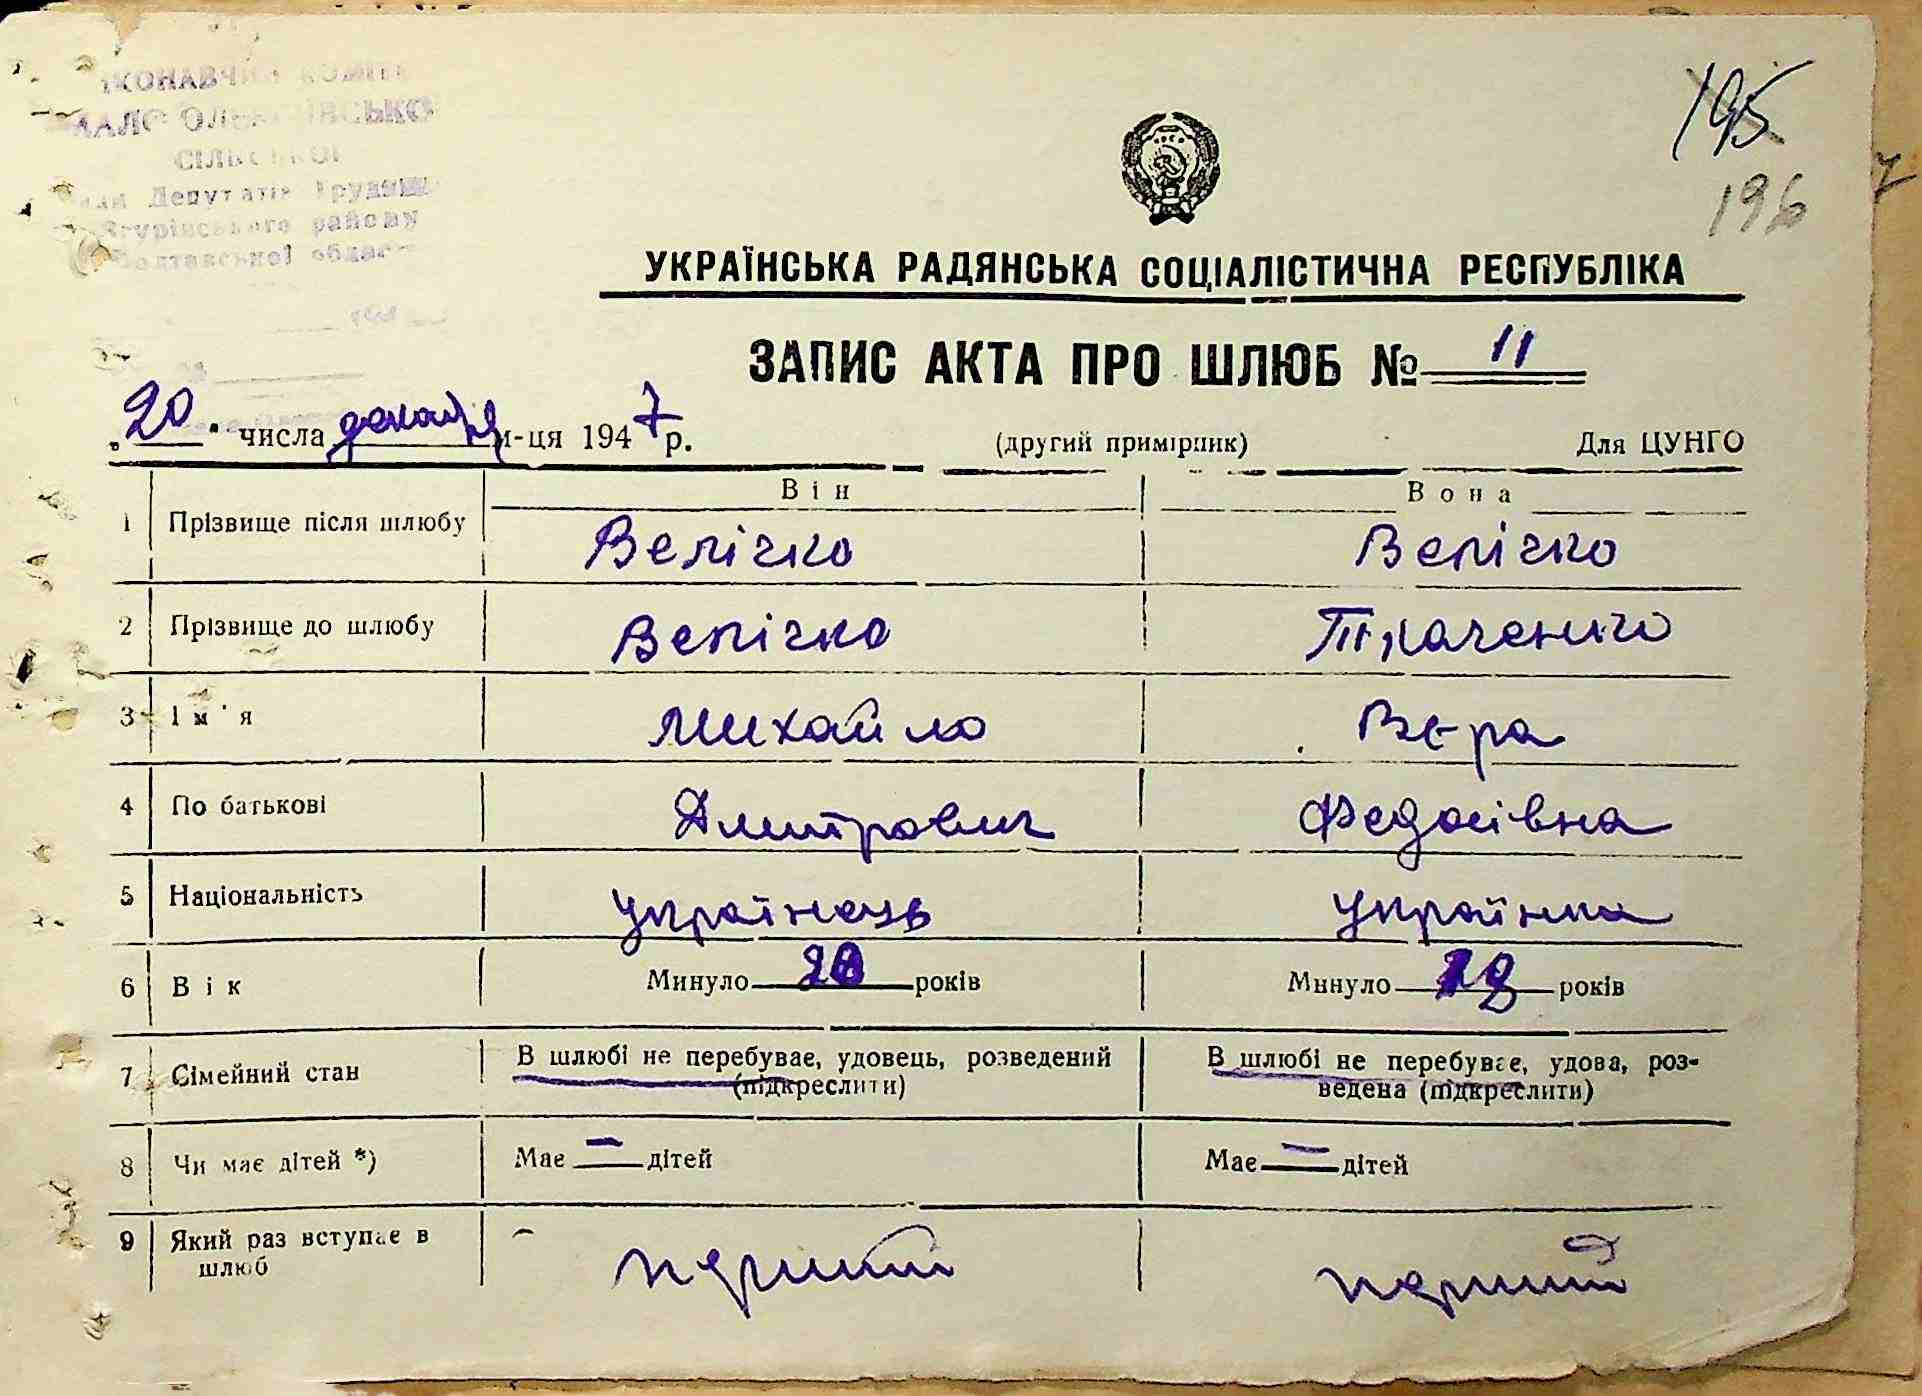 195
196
сільської
Депутатів Трудящ
району
Полтавської
УКРАЇНСЬКА РАДЯНСЬКА СОЦІАЛІСТИЧНА РЕСПУБЛІКА
ЗАПИС АКТА ПРО ШЛЮБ № 11
„20" числа декабря м-ця 1947 р. (другий примірник) Для ЦУНГО
Він Вона
1 Прізвище після шлюбу Велічко Велічко
2 Прізвище до шлюбу Велічко Ткаченко
3 Ім'я Михайло Вера
4 По батькові Дмитрович Федосівна
5 Національність українець українка
6 Вік Минуло 20 років Минуло років
7 Сімейний стан В шлюбі не перебуває, удовець, розведений В шлюбі не перебуває, удова, роз-
(підкреслити) ведена (підкреслити)
8 Чи має дітей *) Має — дітей Має — дітей
9 Який раз вступає в перший перший
шлюб